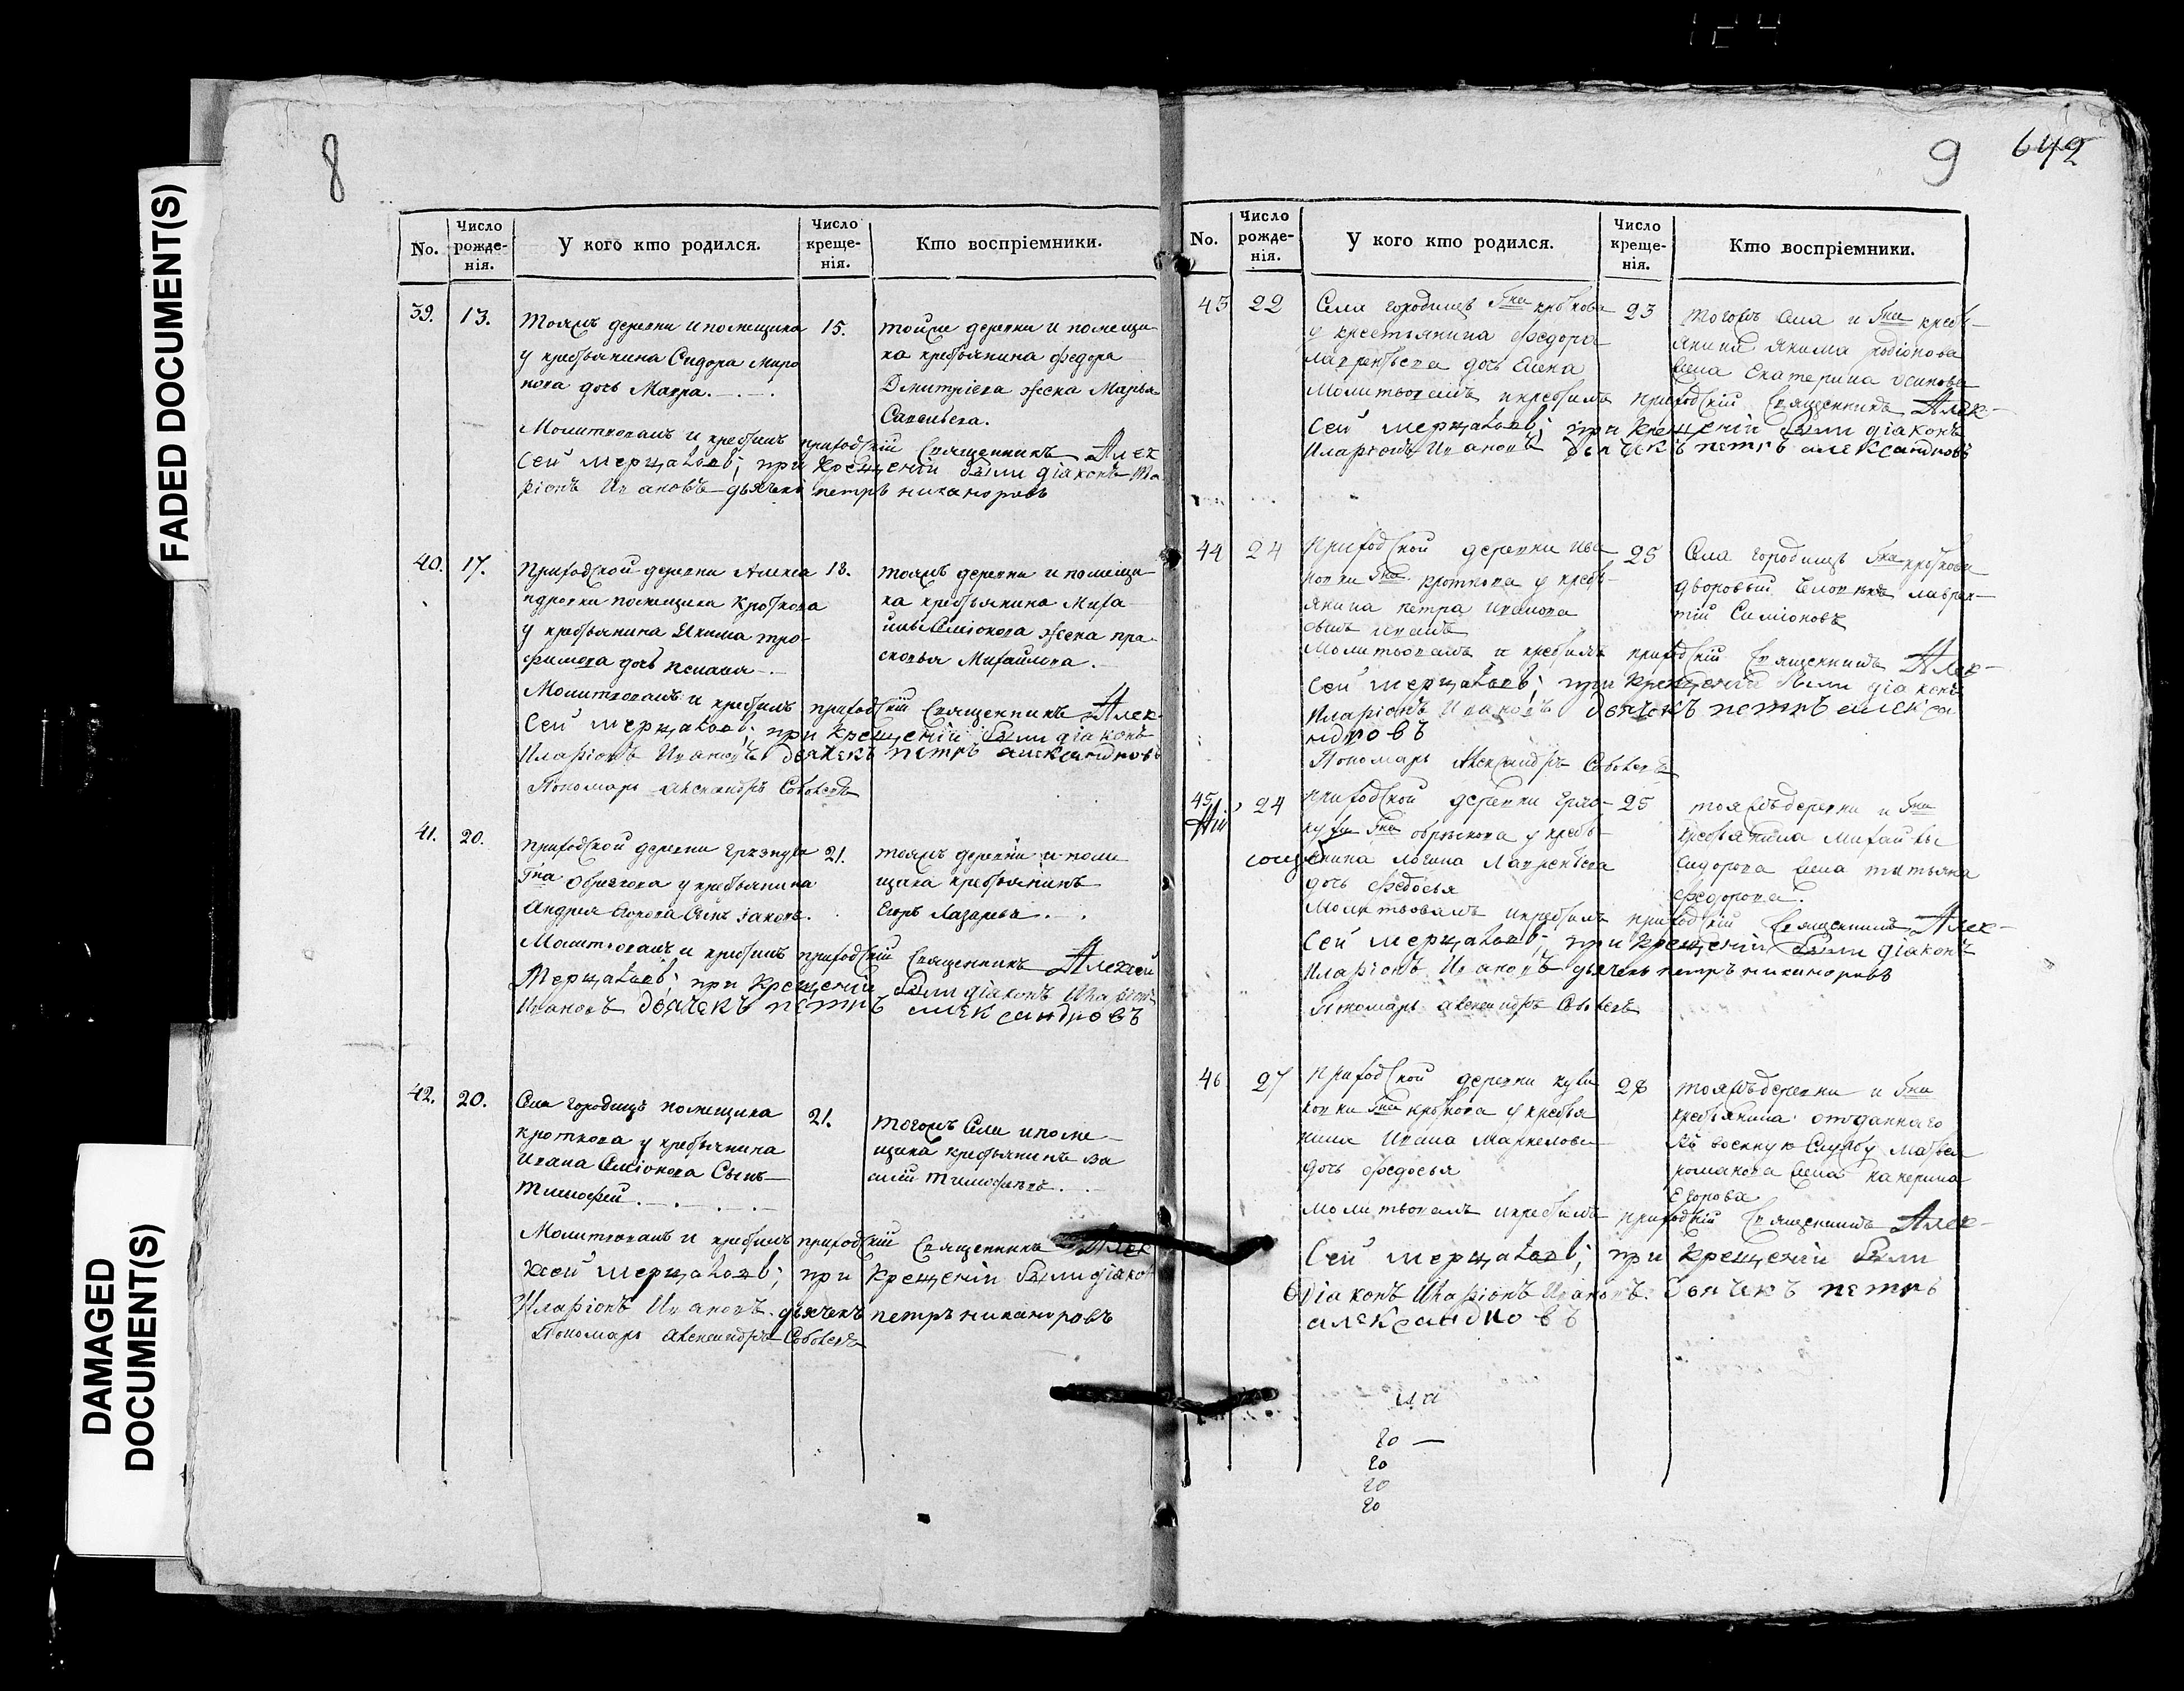 FADED DOCUMENT(S)
DAMAGED
DOCUMENT(S)
8
No.
Число
рожде-
нія.
У кого кто родился.
Число
креще-
нія.
Кто воспріемники.
39.
13.
тояжъ деревни и помещика
у крестьянина Сидора Миро
нова дочь Мавра.
15.
тойже деревни и помещи
ка крестьянина Федора
Дмитріева жена Марья
Савельева.
Молитвовалъ и крестилъ приходскій Священникъ Алек
сей Мерцаловъ; при крещеніи были діаконъ Ила
ріонъ Ивановъ дьячекъ петръ никаноровъ
40.
17.
Приходской деревни Алекса
ндровки помещика Кроткова
у крестьянина Якима тро-
фимова дочь
18.
тояжъ деревни и помещи
ка крестьянина Миха
илы Симіонова жена пра-
сковья Михайлова.
Молитвовалъ и крестилъ приходскій Священникъ Алек-
сей Мерцаловъ; при крещеніи были діаконъ
Иларіонъ Ивановъ дьячекъ петръ александровъ
Пономарь Александръ
41.
20.
приходской деревни
Гна у крестьянина
Андрея Сынъ Іаковъ.
21.
тояжъ деревни и поме
щика крестьянинъ
Егоръ Лазаревъ.
Молитвовалъ и крестилъ приходскій Священникъ Алексей
Мерцаловъ; при крещеніи были діаконъ Иларіонъ
Ивановъ дьячекъ петръ александровъ
42.
20.
Села городищъ помещика
кроткова у крестьянина
Ивана Симіонова Сынъ
Тимофей.
21.
тогожъ Села и поме-
щика крестьянинъ Ва
силій Тимофеевъ.
Молитвовалъ и крестилъ приходскій Священникъ Алек
ксей Мерцаловъ; при крещеніи были діаконъ
Иларіонъ Ивановъ дьячекъ петръ никаноровъ
Пономарь Александръ
9
642
No.
Число
рожде-
нія.
У кого кто родился.
Число
креще-
нія.
Кто воспріемники.
43
22
Села городищъ Гна кроткова
у крестьянина Федора
лаврентьева дочь Елена
23
тогожъ Села и Гна кресть-
янина якима родіонова
жена Екатерина осипова
Молитвовалъ и крестилъ приходскій Священникъ Алек-
сей Мерцаловъ; при крещеніи были діаконъ
Иларіонъ Ивановъ дьячекъ петръ александровъ
44
24
Приходской деревни Ива
новки Гна кроткова у кресть-
янина петра Иванова
сынъ иванъ
25
Села городищъ Гна кроткова
дворовый человекъ лаврен-
тій Симіоновъ
Молитвовалъ и крестилъ приходскій Священникъ Алек-
сей Мерцаловъ; при крещеніи были діаконъ
Иларіонъ Ивановъ дьячекъ петръ алекса
ндровъ
Пономарь Александръ
45
24
Приходской деревни
Гна у кресть-
янина логина Лаврентьева
дочь федосья
25
тояжъ деревни и Гна
крестьянина михайлы
сидорова жена татьяна
федорова.
Молитвовалъ и крестилъ приходскій Священникъ Алек-
сей Мерцаловъ; при крещеніи были діаконъ
Иларіонъ Ивановъ дьячекъ петръ никаноровъ
Пономарь Александръ
46
27
Приходской деревни
Гна кроткова у крестья
нина Ивана Маркелова
дочь федосья
28
тояжъ деревни и Гна
крестьянина отданнаго
въ военную Службу матвея
романова жена катерина
Егорова
Молитвовалъ и крестилъ приходскій Священникъ Алек-
сей Мерцаловъ; при крещеніи были
діаконъ Иларіонъ Ивановъ дьячекъ петръ
александровъ